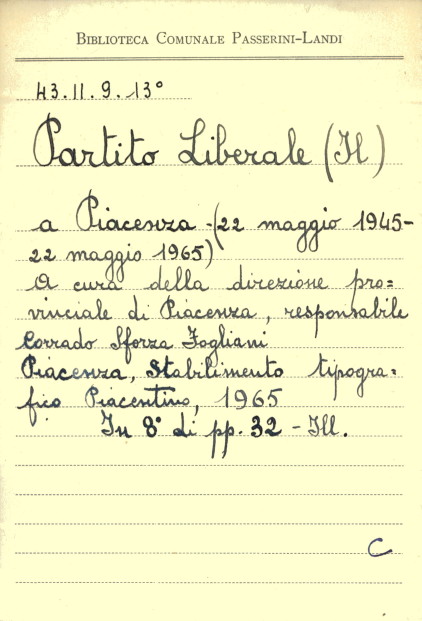 BIBLIOTECA COMUNALE PASSERINI-LANDI
43.II.9.13°
Partito Liberale (Il)
a Piacenza - (22 maggio 1945-
22 maggio 1965)
A cura della direzione pro=
vinciale di Piacenza, responsabile
Corrado Sforza Fogliani
Piacenza, Stabilimento tipogra=
fico Piacentino, 1965
In 8° di pp. 32 - Ill.
C